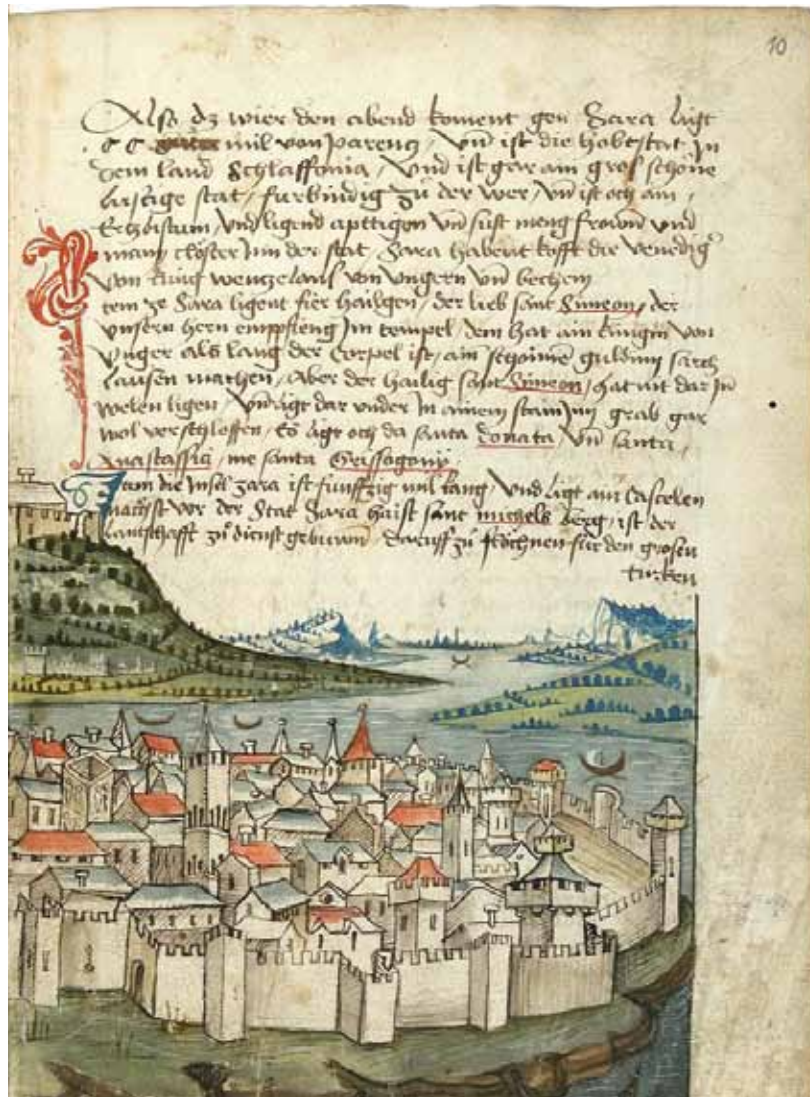 10
Also dz wier den abend koment gen Sara ligt
CC mil von parentz, vn ist die hobtstat In
dem land Schlaffonia, vnd ist gar ain gros schöne
lustige stat, furbindig zu der wer, vn ist och ain
Ertzbistum, vnd ligend apttigen vn sust meng frowen vnd
mann closter Inn der stat, Sara habent kofft die venediger
von kung wentzelaus von vngern vn bechem
Item ze Sara ligent fier hailgen, der lieb sant Simeon, der
vnsern hern empfieng Im tempel dem hat ain kungin von
vnger als lang der Corpel ist, ain schoinen guldinn sarch
laussen machen, Aber der hailig sant Simeon, hat nit dar In
welen ligen, vn ligt dar vnder In ainem stainInn grab gar
wol verschlossen, Es ligt och da santa Donata vn santa
Anastassia, me santa Grissogony
Item die Insel zara ist funffzig mil lang, vnd ligt ain Castelen
nachst vor der Stat Sara haist sant michels berg, ist der
lantschafft zu dienst gebuwen daruff zu flöchnen fur den grosen
turken